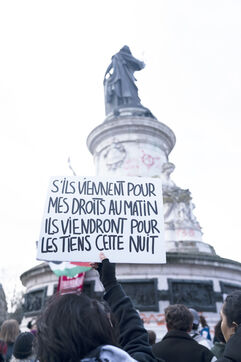 S'ILS VIENNENT POUR
MES DROITS AU MATIN
ILS VIENDRONT POUR
LES TIENS CETTE NUIT